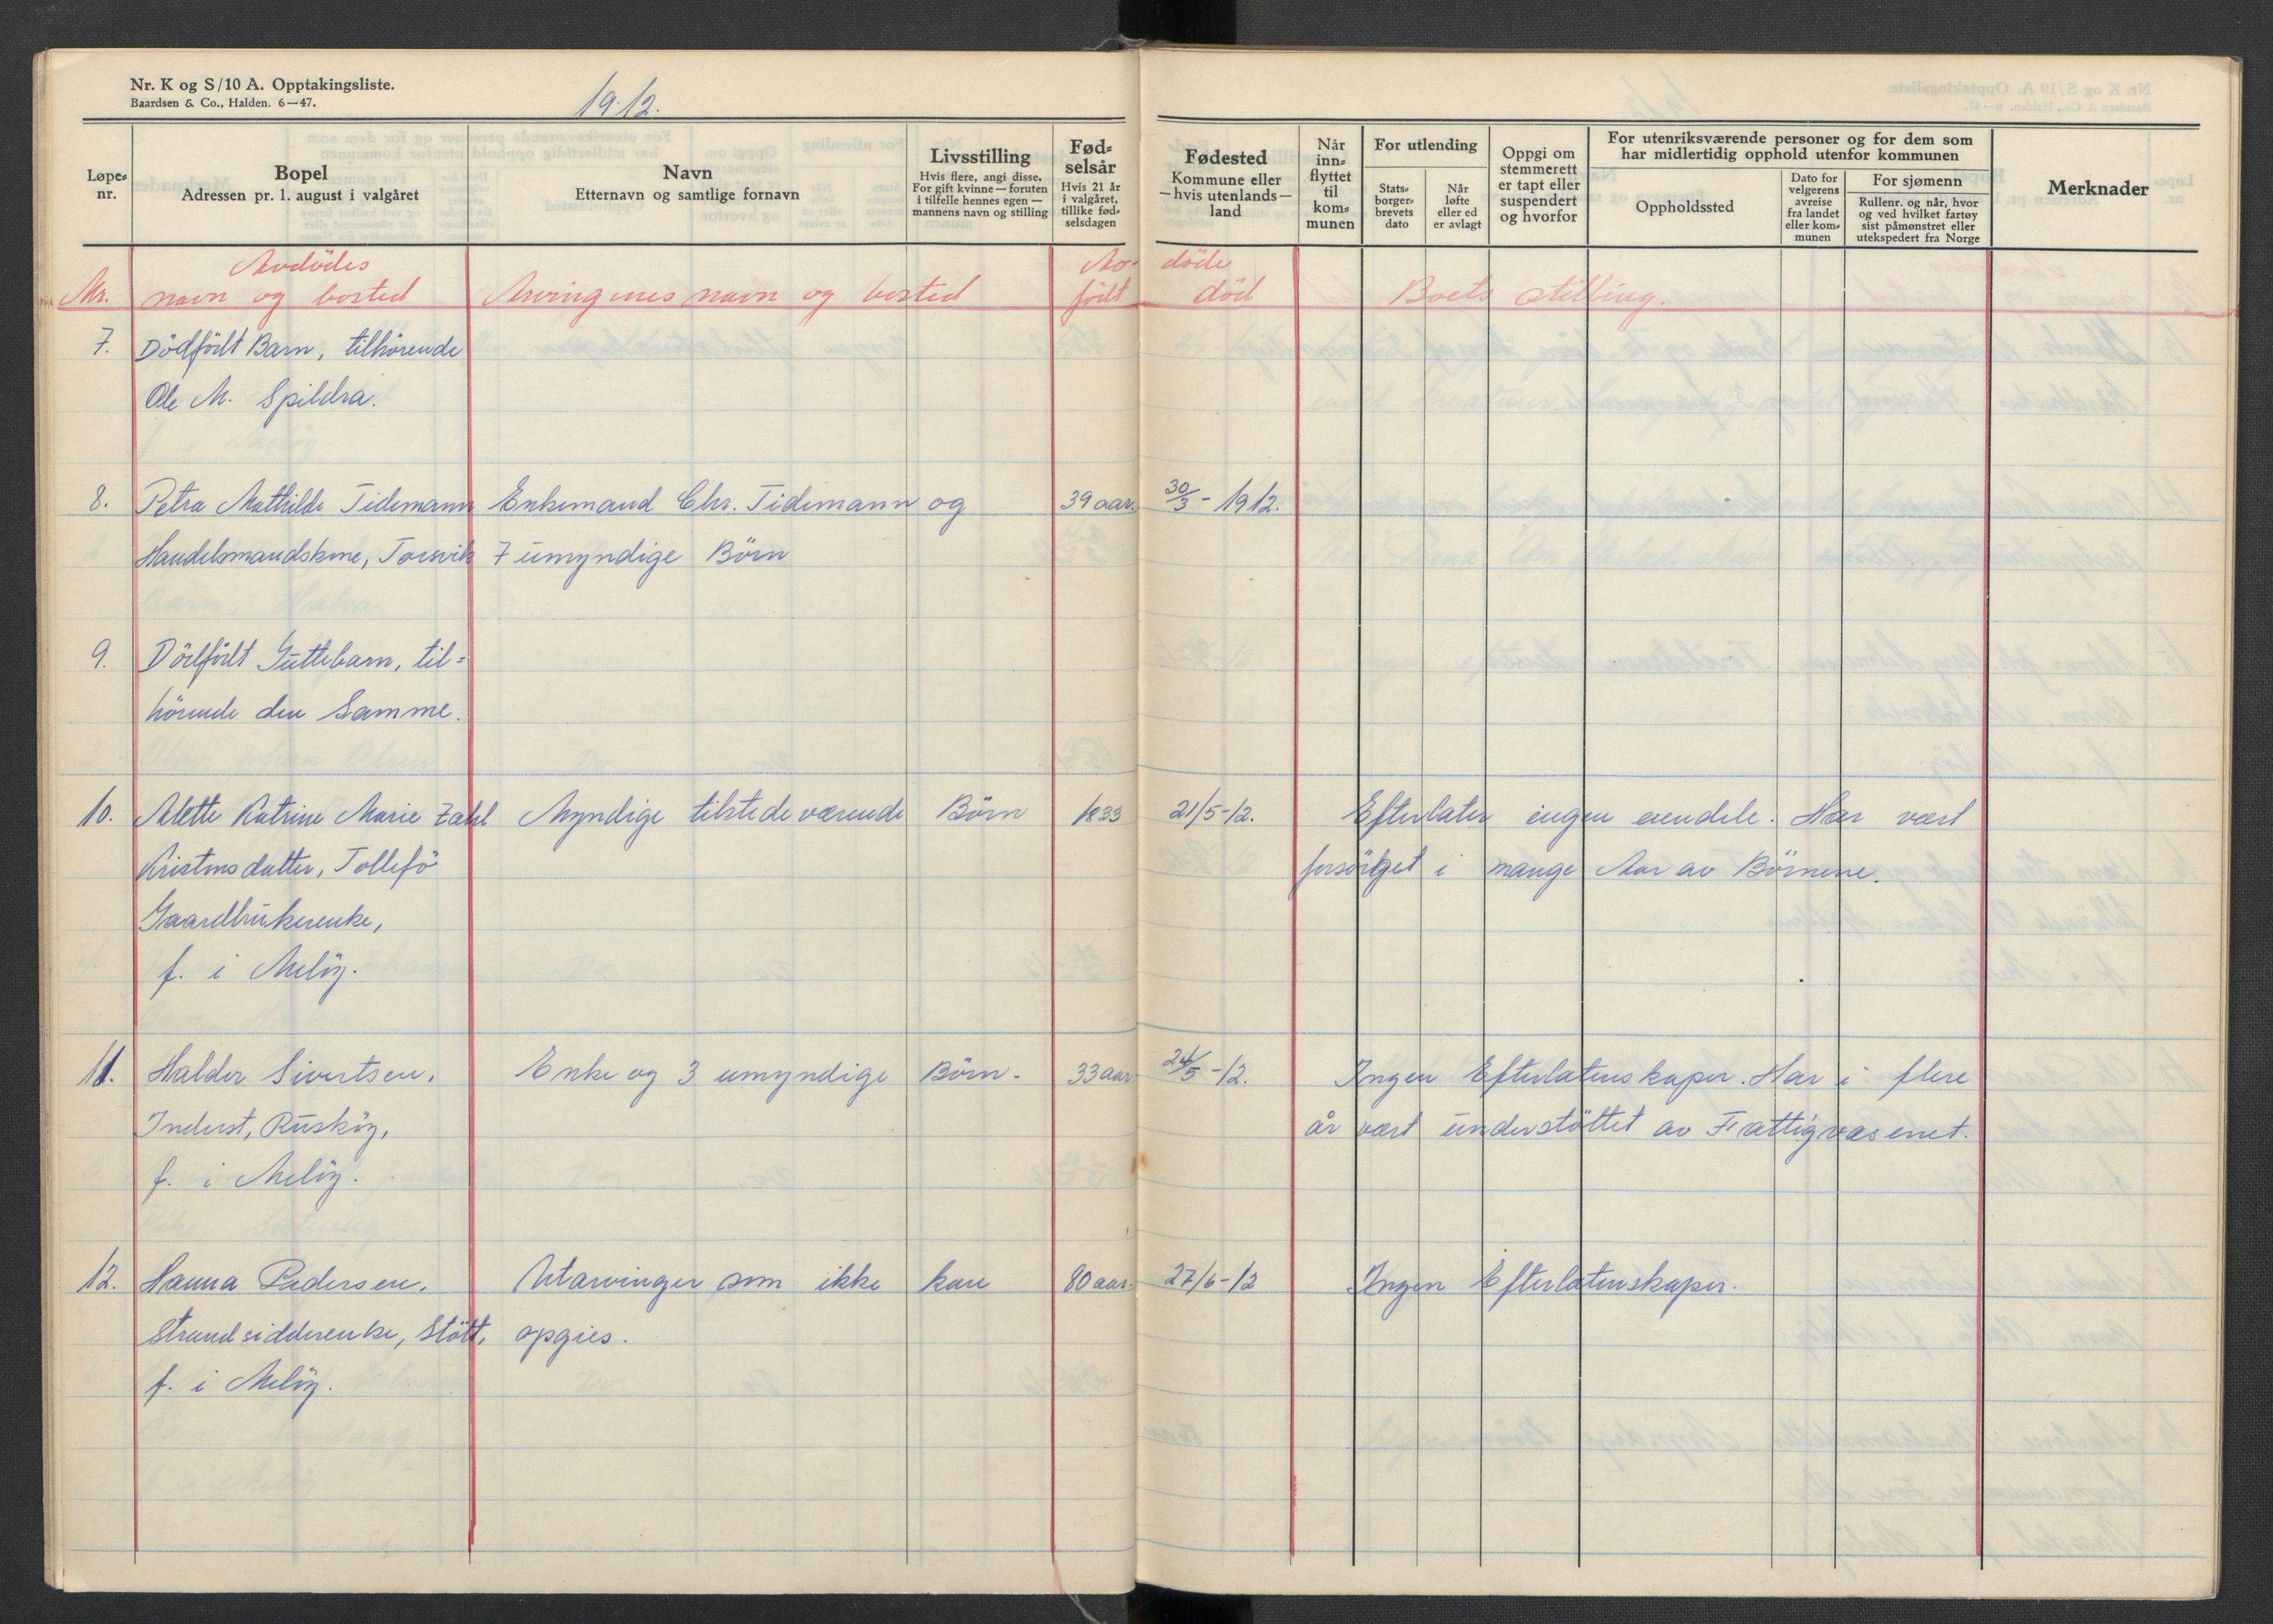 Nr. K og S/10 A. Opptakingsliste.
Baardsen & Co., Halden. 6—47.
1912.
Løpe-nr.
Bopel
Adressen pr. 1. august i valgåret
Navn
Etternavn og samtlige fornavn
Livsstilling
Hvis flere, angi disse.
For gift kvinne — foruten
i tilfelle hennes egen —
mannens navn og stilling
Fød-
selsår
Hvis 21 år
i valgåret,
tillike fød-
selsdagen
Fødested
Kommune eller
— hvis utenlands —
land
Når
inn-
flyttet
til
kom-
munen
For utlending
Stats-
borger-
brevets
dato
Når
løfte
eller ed
er avlagt
Oppgi om
stemmerett
er tapt eller
suspendert
og hvorfor
For utenriksværende personer og for dem som
har midlertidig opphold utenfor kommunen
Oppholdssted
Dato for
velgerens
avreise
fra landet
eller kom-
munen
For sjømenn
Rullenr. og når, hvor
og ved hvilket fartøy
sist påmønstret eller
utekspedert fra Norge
Merknader
Avdödes Av- döde
Nr. navn og bosted Arvingenes navn og bosted födt död Boets stilling.
7. Dödfödt Barn, tilhörende
Ole M. Spildra.
8. Petra Mathilde Tidemann Enkemand Chr. Tidemann og 39 aar. 30/3 - 1912.
Handelsmandskone, Torsvik 7 umyndige Börn
9. Dödfödt Guttebarn, til=
hörende den Samme.
10. Alette Katrine Marie Zahl Myndige tilstedeværende Börn 1833 21/5-12. Efterlater ingen eiendele. Har vært
Kristensdatter, Tollefö forsörget i mange Aar av Börnene.
Gaardbrukerenke,
f. i Melöy.
11. Halder Sivertsen. Enke og 3 umyndige Börn. 33 aar 24/5-12. Ingen Efterlatenskaper. Har i flere
Inderst, Rusköy, år vært understöttet av Fattigvæsenet.
f. i Melöy.
12. Hanna Pedersen. Utarvinger som ikke kan 80 aar. 27/6-12 Ingen Efterlatenskaper.
Strandsidderenke, Stött, opgies.
f. i Melöy.